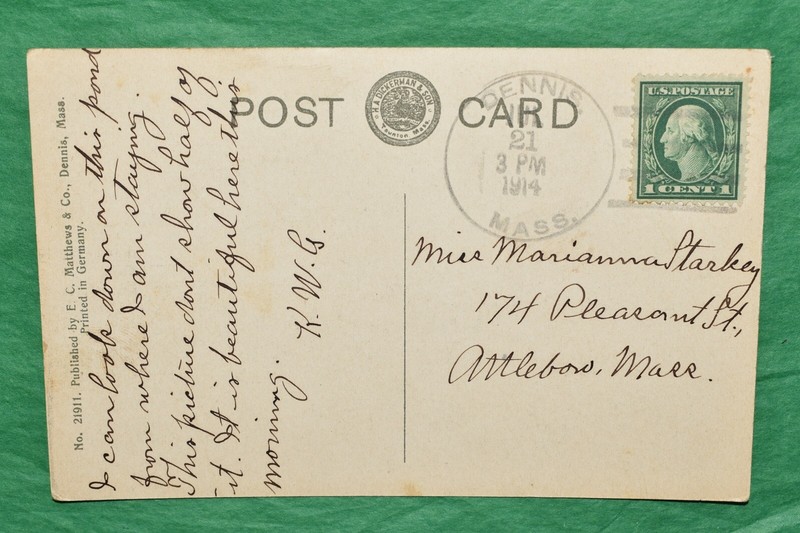 POST CARD
H.A. DICKERMAN & SON
Taunton, Mass.
DENNIS
21
3 PM
1914
MASS.
U.S. POSTAGE
1 CENT 1
No. 21911. Published by E. C. Matthews & Co., Dennis, Mass.
Printed in Germany.
I can look down on this pond
from where I am staying.
This picture dont show half of
it. It is beautiful here this
morning.
K.W.G.
Miss Marianna Starkey
174 Pleasant St.,
Attleboro, Mass.